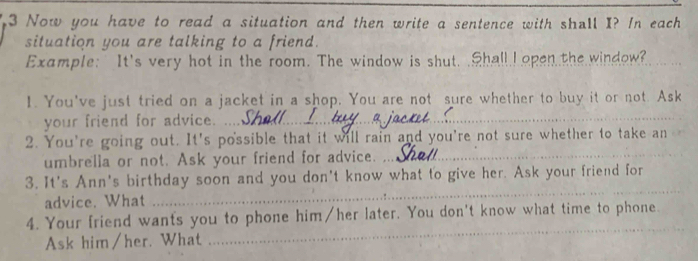 3 Now you have to read a situation and then write a sentence with shall I? In each
situation you are talking to a friend.
Example: It's very hot in the room. The window is shut. ..Shall I open the window?......
1. You've just tried on a jacket in a shop. You are not sure whether to buy it or not. Ask
your friend for advice. ....Shall I buy a jacket ?....
2. You're going out. It's possible that it will rain and you're not sure whether to take an
umbrella or not. Ask your friend for advice. ...Shall....
3. It's Ann's birthday soon and you don't know what to give her. Ask your friend for
advice. What ....
4. Your friend wants you to phone him/her later. You don't know what time to phone.
Ask him/her. What ....